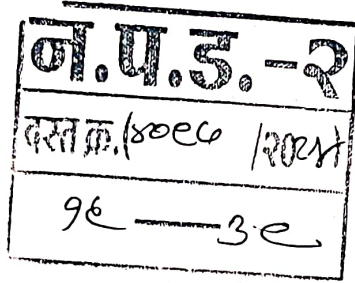 न.प.ड.-२
दस्त क्र.(४०९७ /२०२४)
१६ —— ३९